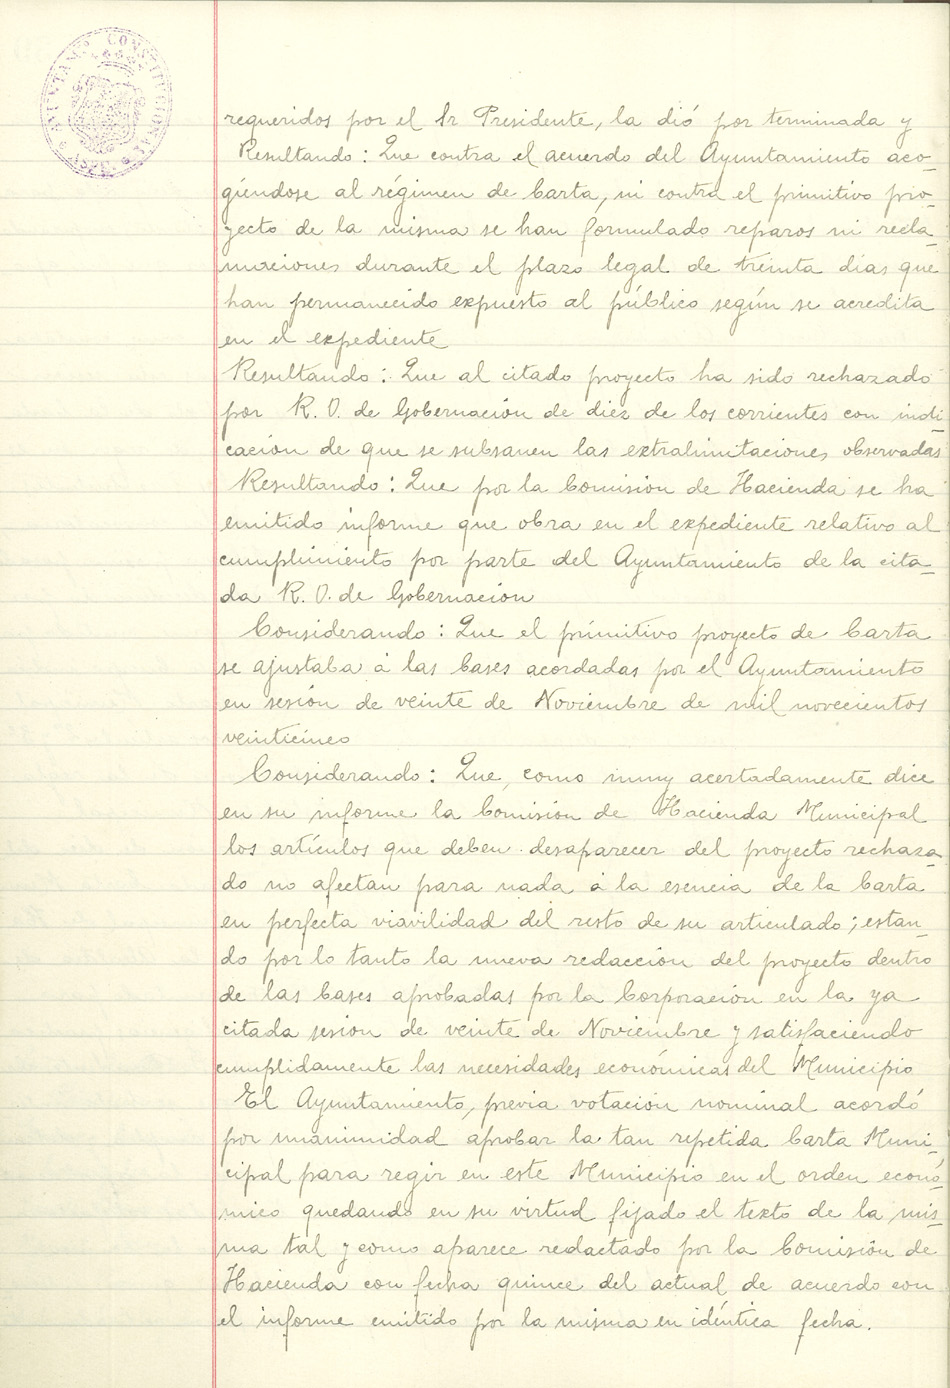 AYUNTAMº CONSTITUCIONAL
ASPE
requeridos por el Sr Presidente, la dió por terminada y
Resultando: Que contra el acuerdo del Ayuntamiento aco-
giéndose al régimen de Carta, ni contra el primitivo pro-
yecto de la misma se han formulado reparos ni recla-
maciones durante el plazo legal de treinta días que
han permanecido expuesto al público según se acredita
en el expediente
Resultando: Que al citado proyecto ha sido rechazado
por R. O. de Gobernación de diez de los corrientes con indi-
cación de que se subsanen las extralimitaciones observadas
Resultando: Que por la Comisión de Hacienda se ha
emitido informe que obra en el expediente relativo al
cumplimiento por parte del Ayuntamiento de la cita-
da R. O. de Gobernación
Considerando: Que el primitivo proyecto de Carta
se ajustaba á las bases acordadas por el Ayuntamiento
en sesión de veinte de Noviembre de mil novecientos
veinticinco
Considerando: Que, como muy acertadamente dice
en su informe la Comisión de Hacienda Municipal
los artículos que deben desaparecer del proyecto rechaza-
do no afectan para nada á la esencia de la Carta
en perfecta viavilidad del resto de su articulado; estan-
do por lo tanto la nueva redacción del proyecto dentro
de las bases aprobadas por la Corporación en la ya
citada sesión de veinte de Noviembre y satisfaciendo
cumplidamente las necesidades económicas del Municipio
El Ayuntamiento, previa votación nominal acordó
por unanimidad aprobar la tan repetida Carta Muni-
cipal para regir en este Municipio en el orden econó-
mico quedando en su virtud fijado el texto de la mis-
ma tal y como aparece redactado por la Comisión de
Hacienda con fecha quince del actual de acuerdo con
el informe emitido por la misma en idéntica fecha.